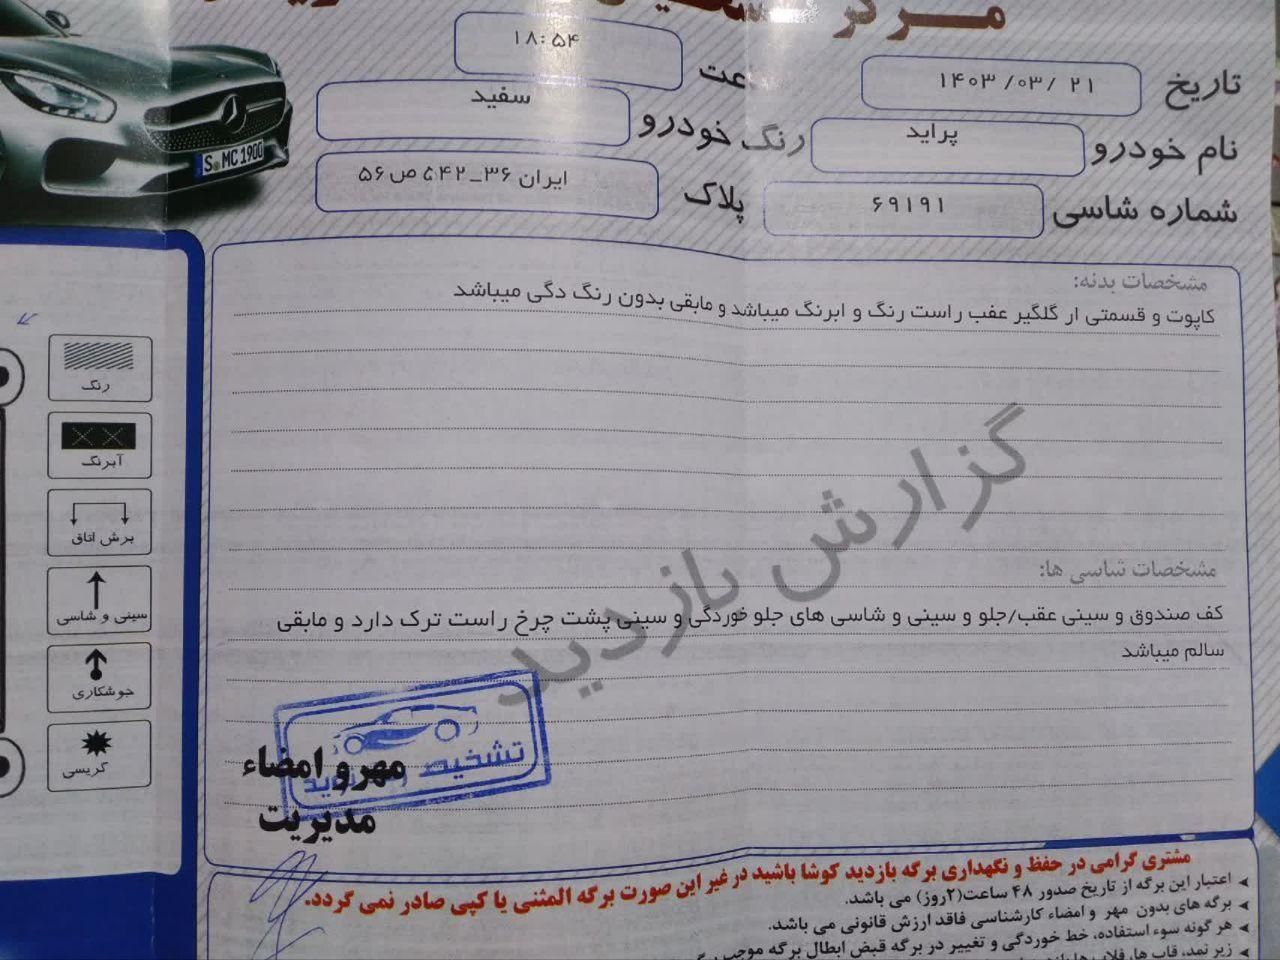 مرکز
تاریخ ۱۴۰۳/۰۳/ ۲۱
۱۸:۵۴
نام خودرو پراید
رنگ خودرو سفید
شماره شاسی ۶۹۱۹۱
پلاک ایران ۳۶_۵۴۲ ص ۵۶
S MC 1900
مشخصات بدنه:
کاپوت و قسمتی ار گلگیر عفب راست رنگ و ابرنگ میباشد و مابقی بدون رنگ دگی میباشد
رنگ
آبرنگ
برش اتاق
سینی و شاسی
جوشکاری
گریسی
گزارش بازدید
مشخصات شاسی ها:
کف صندوق و سینی عقب/جلو و سینی و شاسی های جلو خوردگی و سینی پشت چرخ راست ترک دارد و مابقی
سالم میباشد
تشخیص
مهر و امضاء
مدیریت
مشتری گرامی در حفظ و نگهداری برگه بازدید کوشا باشید در غیر این صورت برگه المثنی یا کپی صادر نمی گردد.
اعتبار این برگه از تاریخ صدور ۴۸ ساعت(۲روز) می باشد.
برگه های بدون مهر و امضاء کارشناسی فاقد ارزش قانونی می باشد.
هر گونه سوء استفاده، خط خوردگی و تغییر در برگه قبض ابطال برگه موجب
زیر نمد، قاب ها،